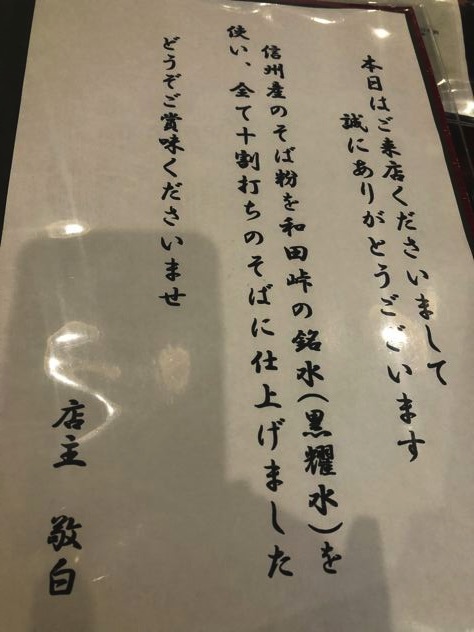 本日はご来店くださいまして
誠にありがとうございます
信州産のそば粉を和田峠の銘水(黒耀水)を
使い、全て十割打ちのそばに仕上げました
どうぞご賞味くださいませ
店主 敬白